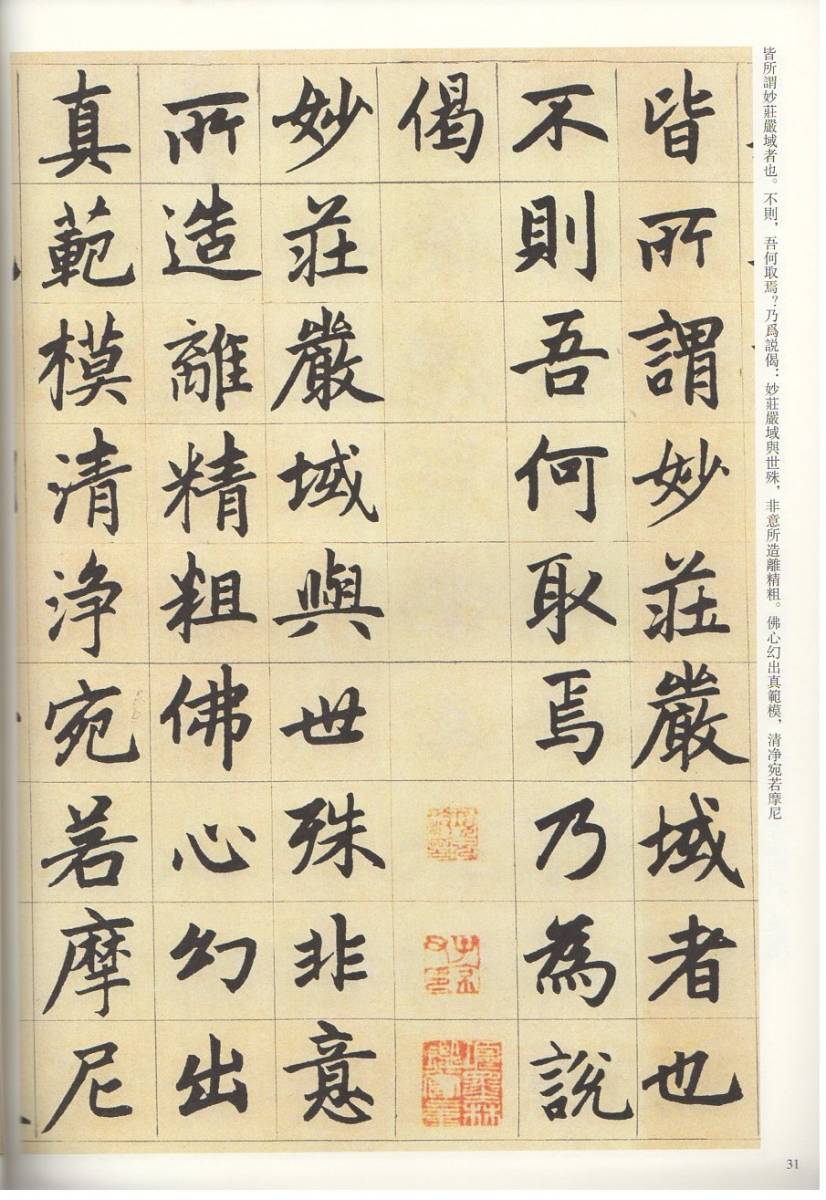 皆所謂妙莊嚴域者也。不則，吾何取焉？乃爲説偈：妙莊嚴域與世殊，非意所造離精粗。佛心幻出真範模，清净宛若摩尼
皆所謂妙莊嚴域者也
不則吾何取焉乃為說
偈
妙莊嚴域與世殊非意
所造離精粗佛心幻出
真範模清淨宛若摩尼
31